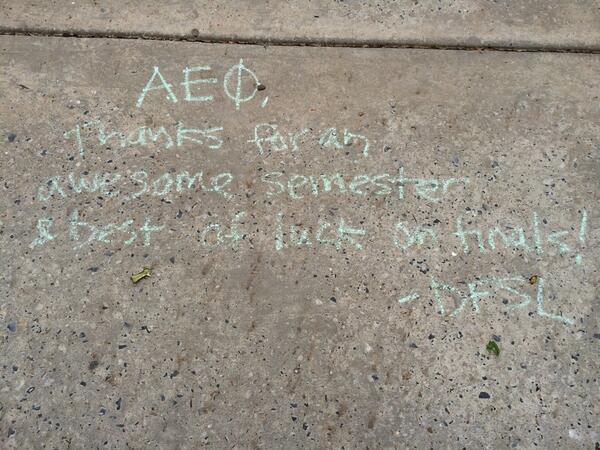 ΑΕΦ,
Thanks for an
awesome semester
& best of luck on finals!
-DFSL